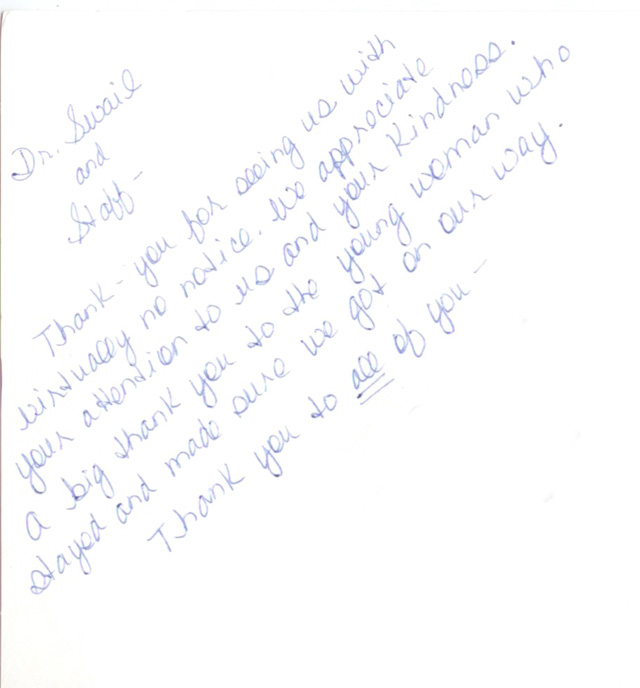 Dr. Swail
and
Staff-
Thank-you for seeing us with
virtually no notice. We appreciate
your attention to us and your kindness.
A big thank you to the young woman who
stayed and made sure we got on our way.
Thank you to all of you-